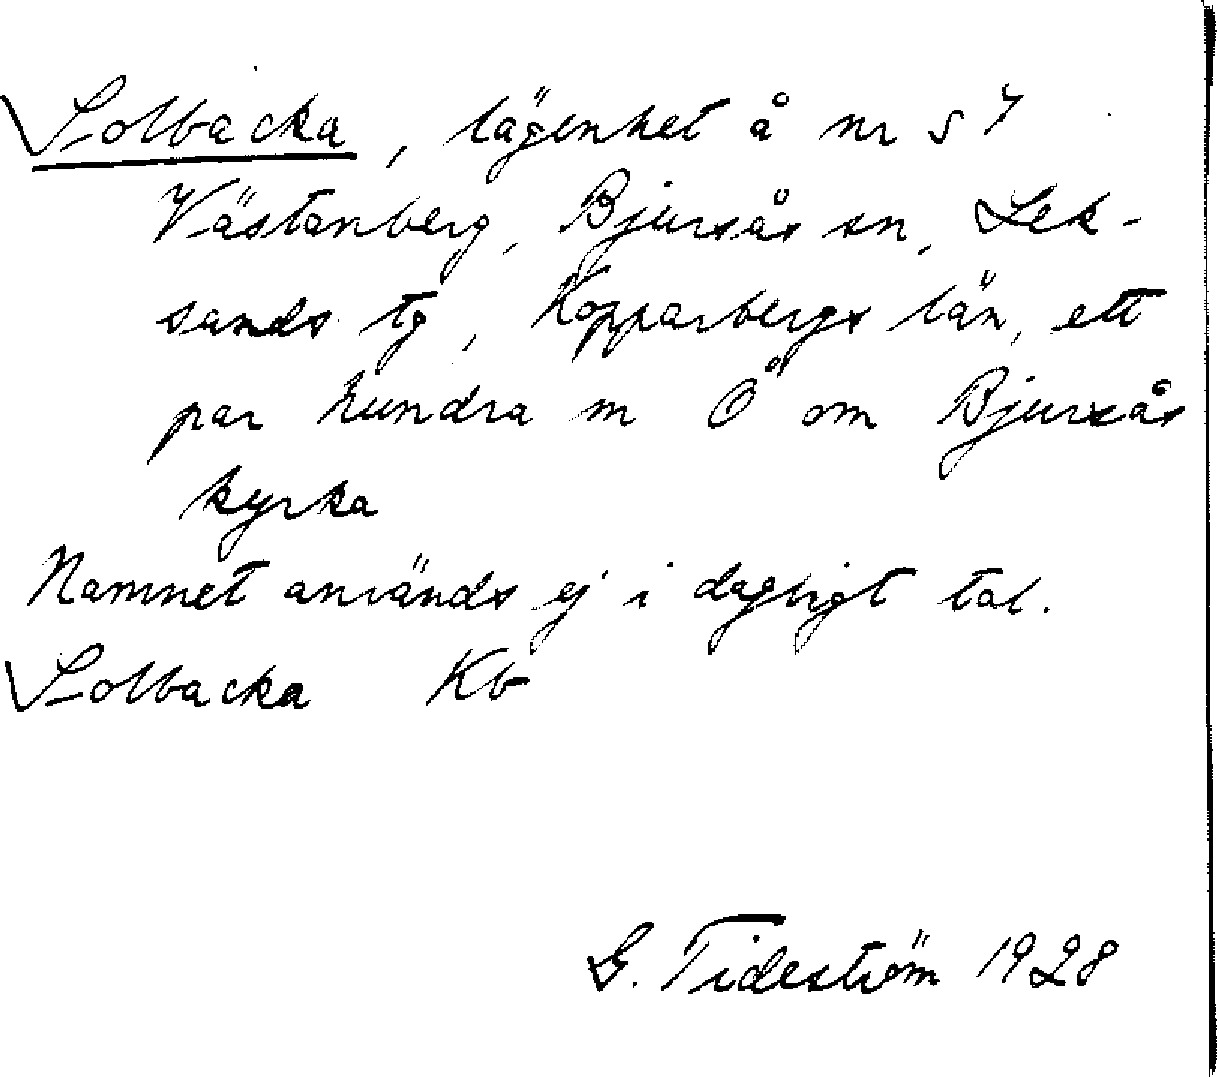 Solbacka, lägenhet å nr 57
Västanberg, Bjursås sn, Lek-
sands tg, Kopparbergs län, ett
par hundra m Ö om Bjursås
kyrka
Namnet används ej i dagligt tal.
Solbacka Kb
G. Tideström 1928